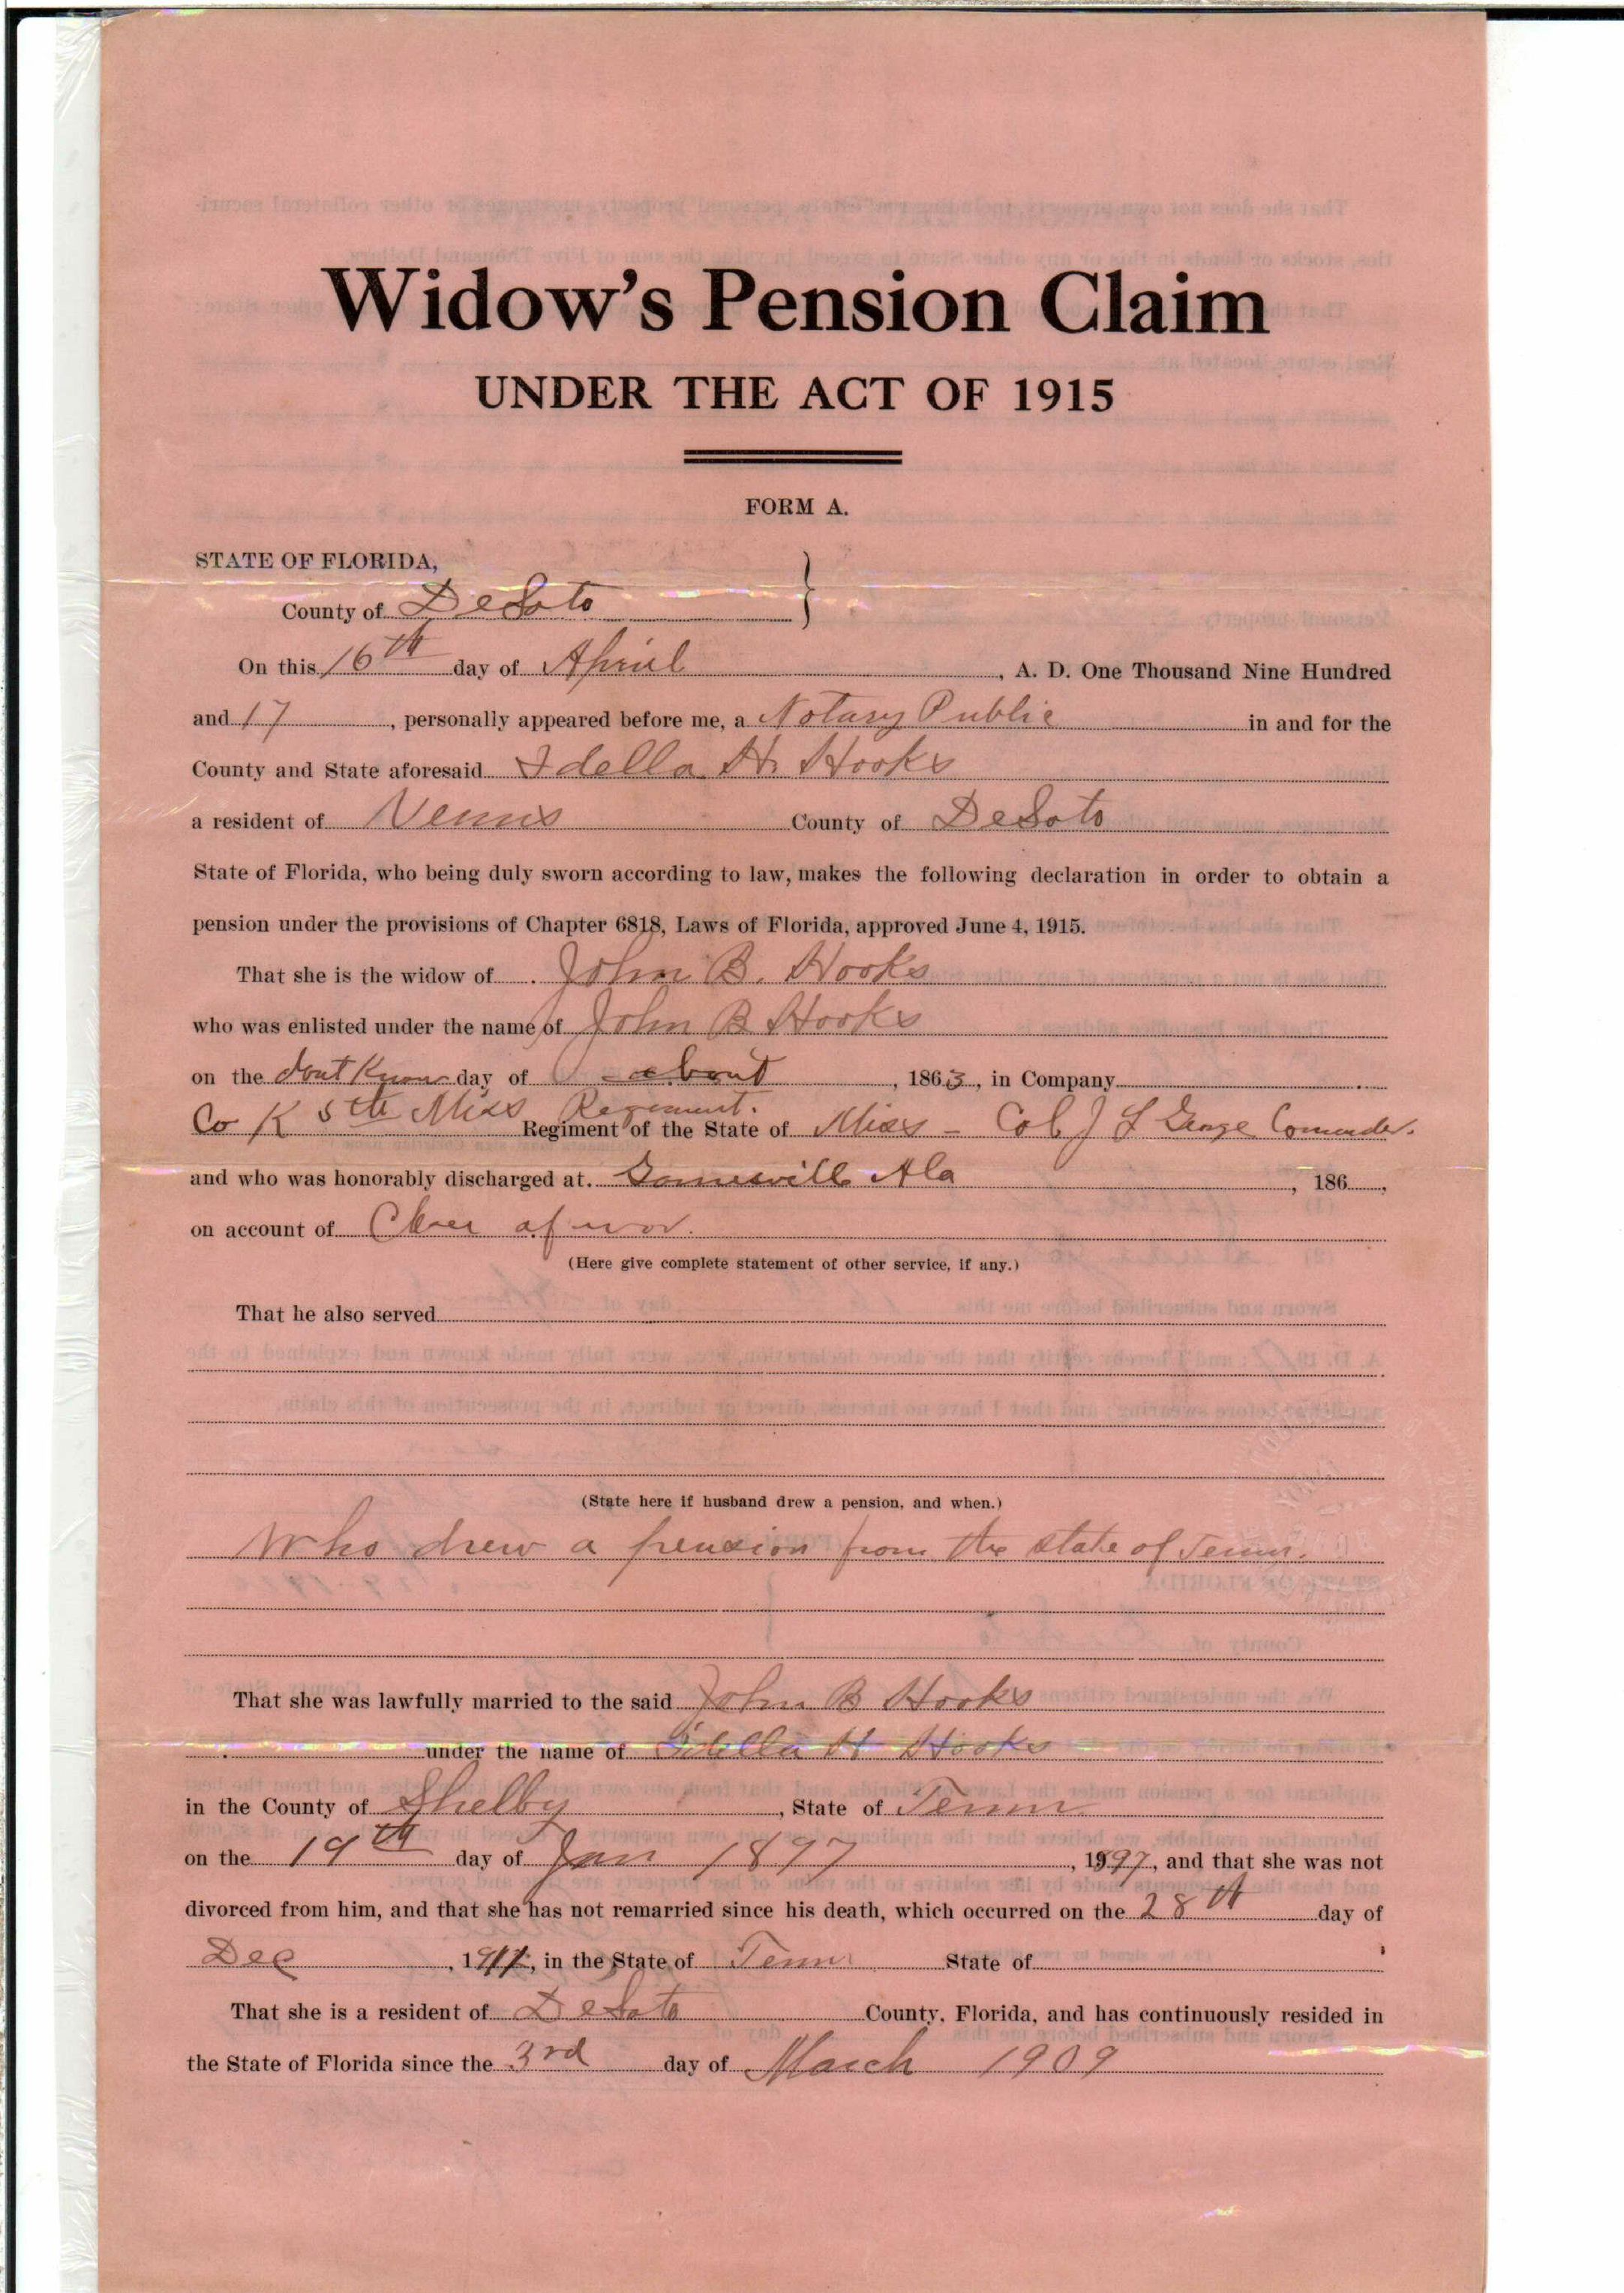 Widow's Pension Claim
UNDER THE ACT OF 1915
FORM A.
STATE OF FLORIDA,
County of DeSoto
On this 16th day of April, A. D. One Thousand Nine Hundred
and 17, personally appeared before me, a Notary Public in and for the
County and State aforesaid Idella H. Hooks
a resident of Venus County of DeSoto
State of Florida, who being duly sworn according to law, makes the following declaration in order to obtain a
pension under the provisions of Chapter 6818, Laws of Florida, approved June 4, 1915.
That she is the widow of John B. Hooks
who was enlisted under the name of John B Hooks
on the dont Know day of about, 1863, in Company
Co K 5th Miss Regiment.
Regiment of the State of Miss - Col J Z George Comander.
and who was honorably discharged at. Ala, 186,
on account of Close of war.
(Here give complete statement of other service, if any.)
That he also served
(State here if husband drew a pension, and when.)
Who drew a pension from the state of Tenn.
That she was lawfully married to the said John B Hooks
under the name of Idella H Hooks
in the County of Shelby, State of Tenn
on the 19th day of Jan 1897, 1997, and that she was not
divorced from him, and that she has not remarried since his death, which occurred on the 28th day of
Dec, 19, in the State of Tenn State of
That she is a resident of DeSoto County, Florida, and has continuously resided in
the State of Florida since the 3rd day of March 1909